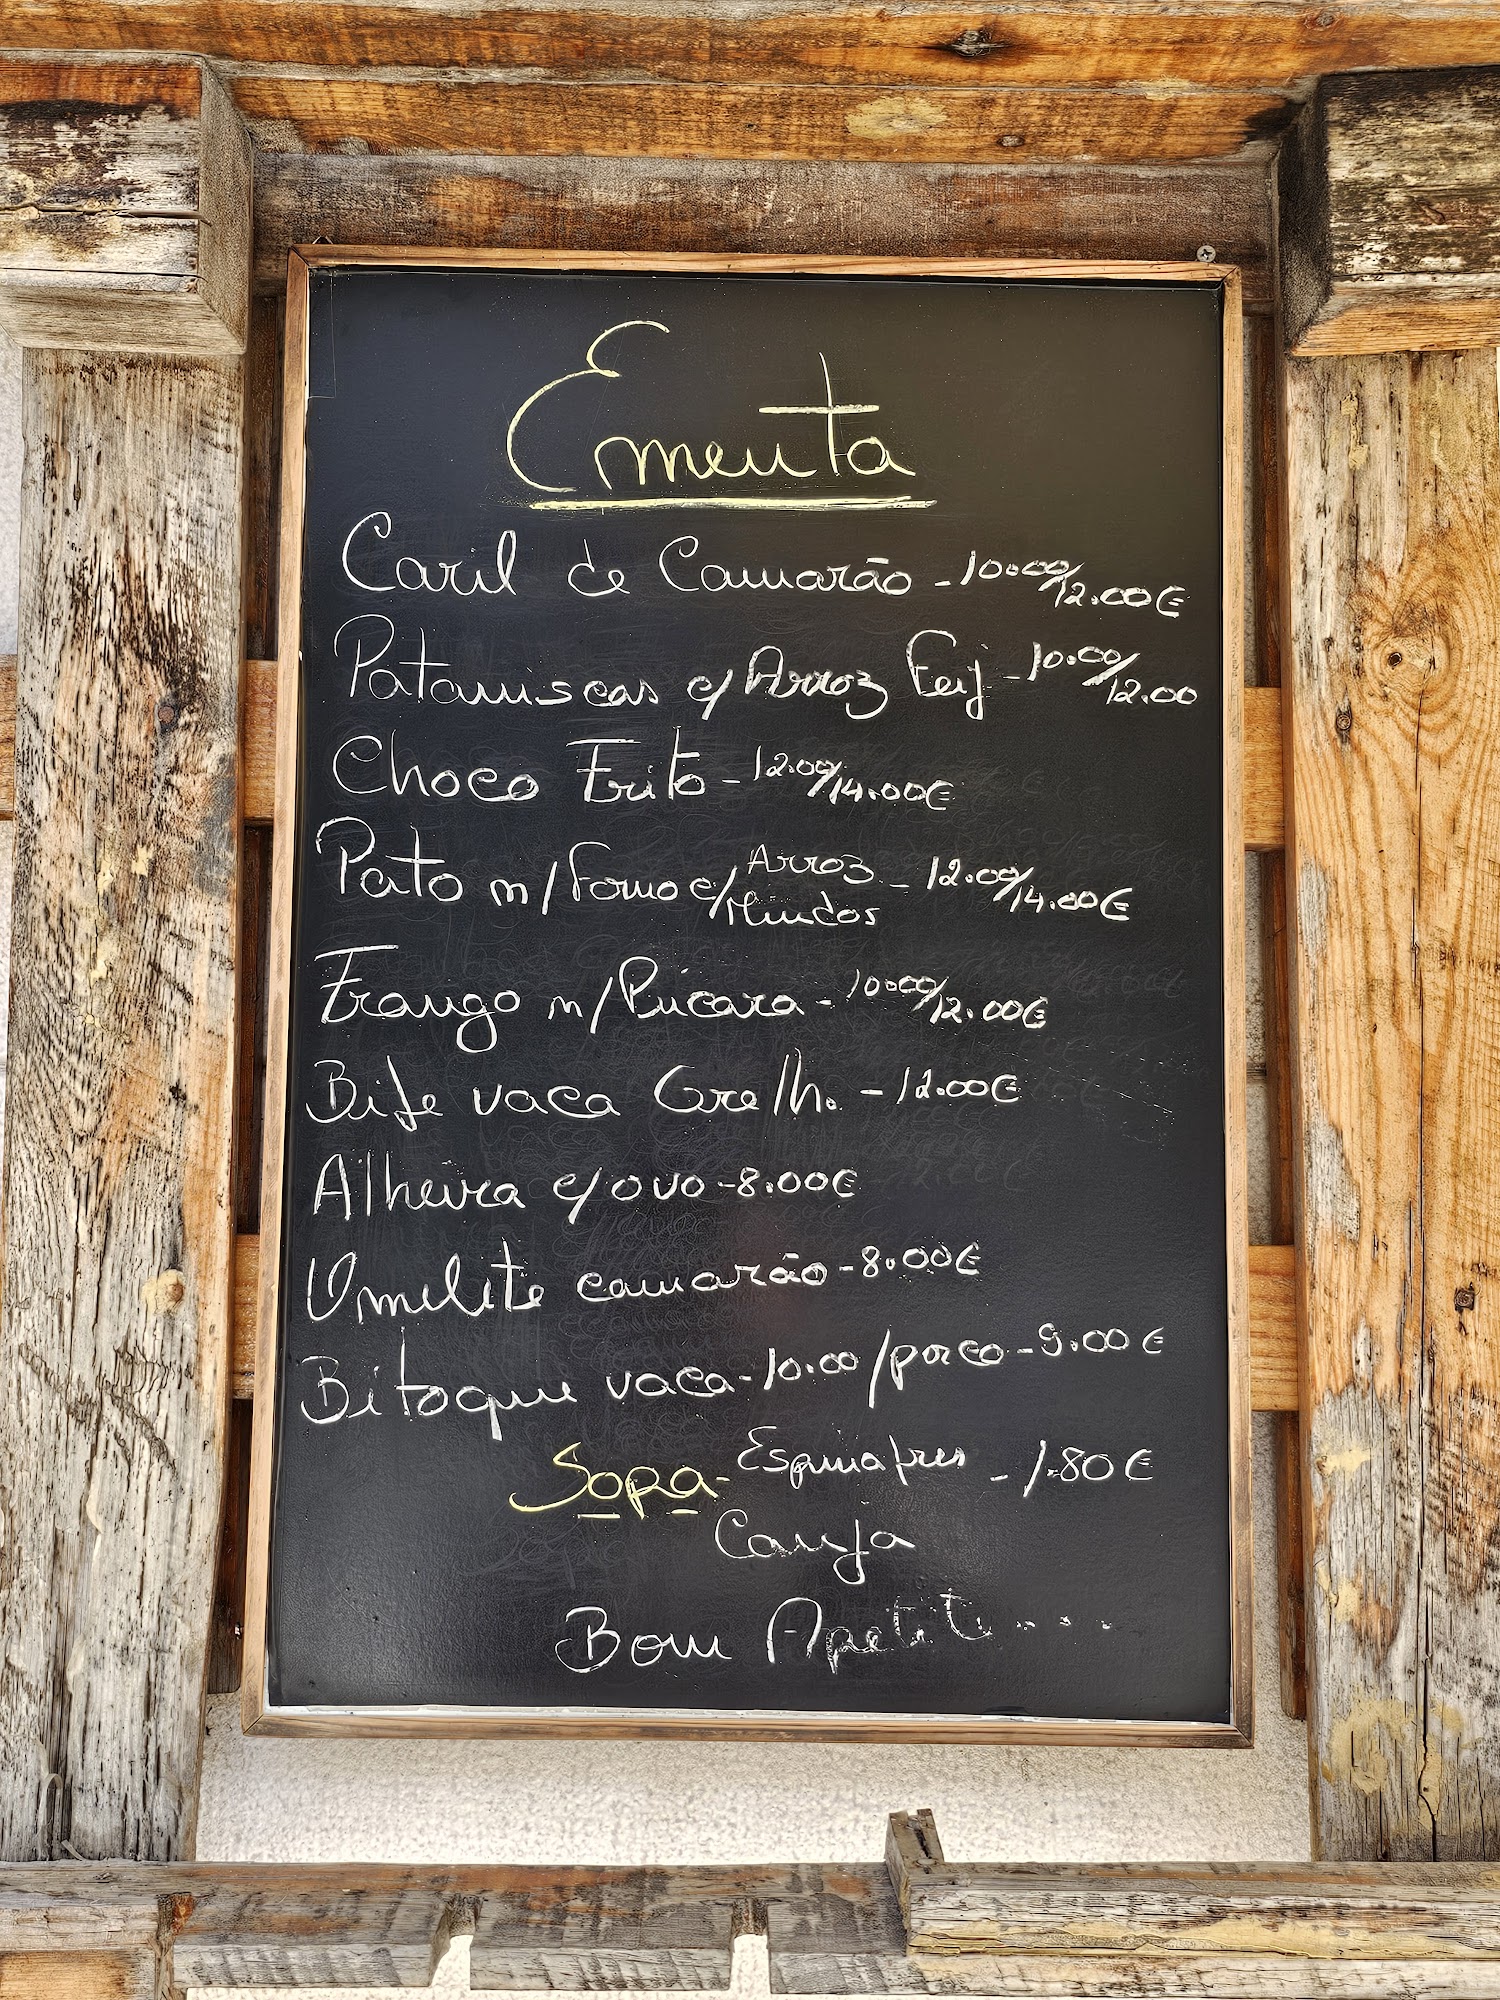 Ementa
Caril de Camarão - 10.00/12.00€
Pataniscas c/ Arroz Feij - 10.00/12.00
Choco Frito - 12.00/14.00€
Pato n/ Forno c/ Arroz Miudos - 12.00/14.00€
Frango n/ Púcara - 10.00/12.00€
Bife vaca Grelh. - 12.00€
Alheira c/ ovo - 8.00€
Omelete camarão - 8.00€
Bitoque vaca - 10.00 / porco - 9.00€
Sopa - Espinafres - 1.80€
Canja
Bom Apetite....